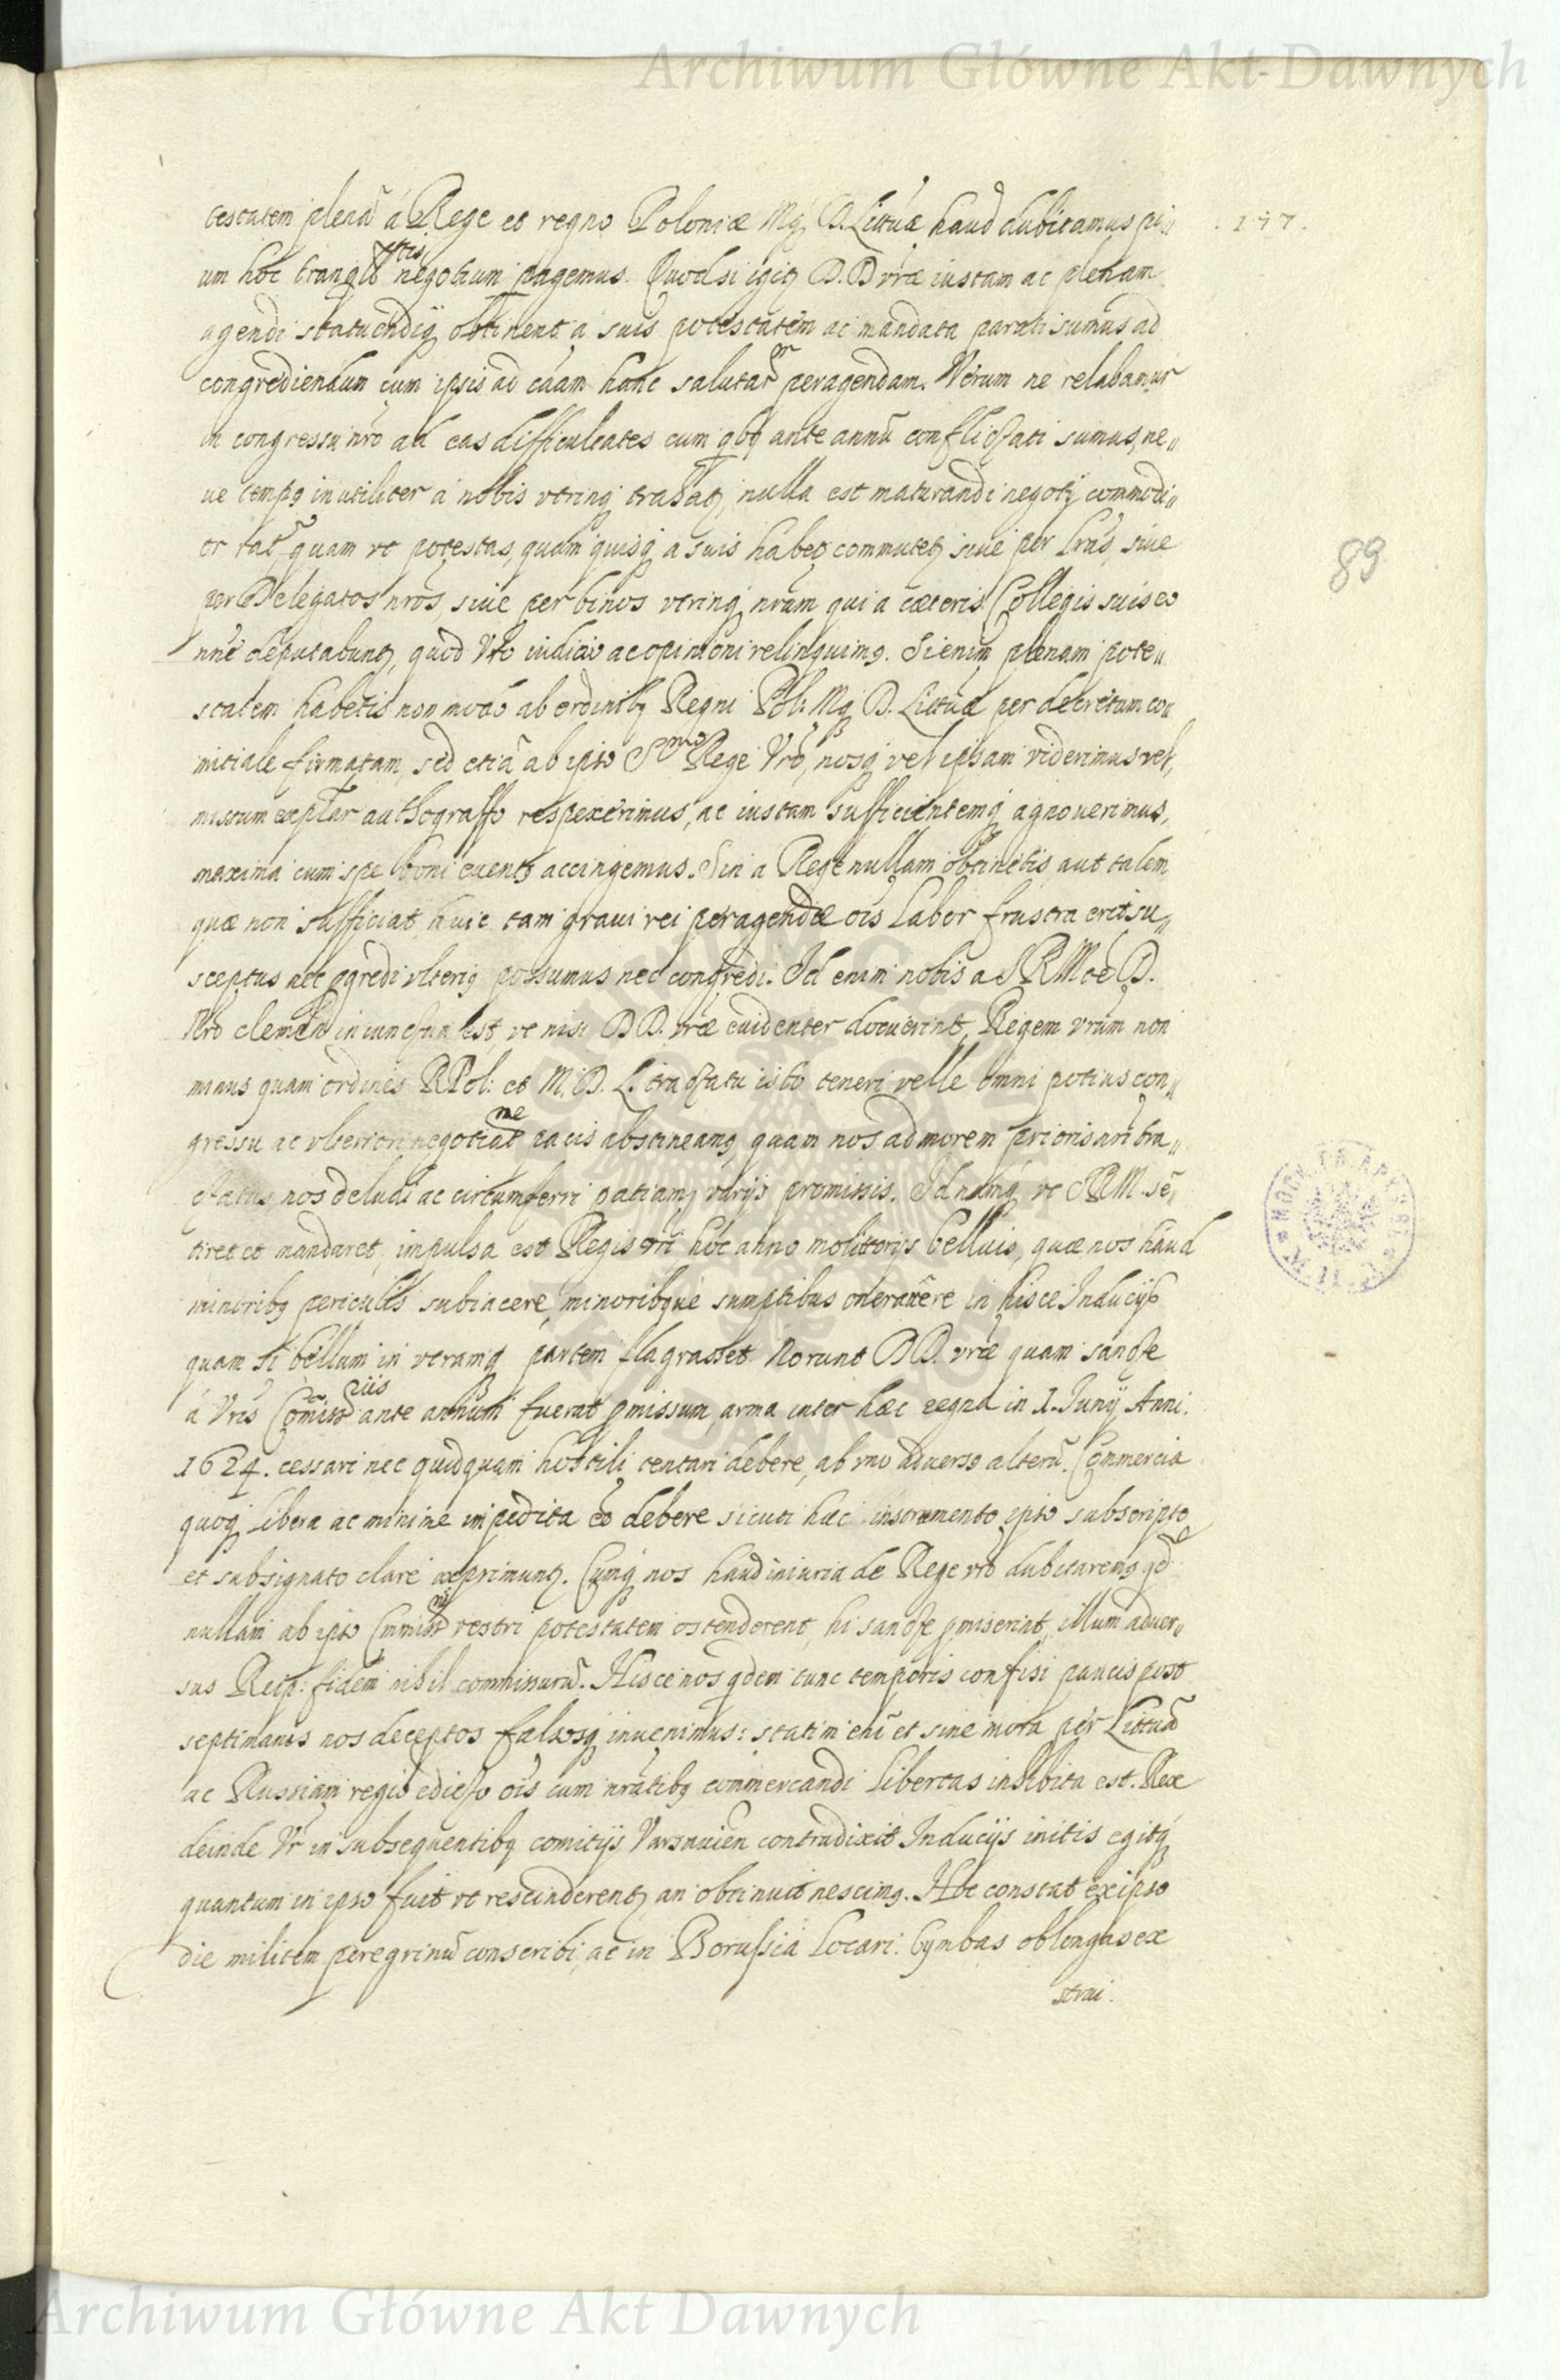 Archiwum Główne Akt Dawnych
testatem plenā á Rege et regno Poloniæ Mq́ D. Littúæ haud dubitamus pi„
. 147 .
um hoc negotium pagemus. Quod si igit D. D vræ iustam ac plenam
agendi statuendiq́ obtinent a suis potestatem ac mandata parati sumus ad
congrediendum cum ipsis ad cãam hanc salutarem peragendam. Verum ne relabamur
in congressu nrō ad eas difficultates cum qbq ante annū conflictati sumus, ne„
ue tempq inutiliter a nobis vtrinq́ trahat, nulla est maturandi negotij commodi„
or rat quam vt potestas, quam quisq́ a suis habet commutet siue per lrās, siue
89
per Delegatos nrōs siue per binos vtrinq́ nrām qui a cæteris Collegis suis eo
nñe deputabunt, quod Vrō iudicio ac opinioni relinquimq. Si enim plenam pote„
statem habetis non modo ab ordinibq Regni Pol: Mq́ D. Littuæ per decretum co„
mitiale firmatam, sed etiā ab ipso Smo Rege Vrō, nosq́ vel ipsam viderimus vel,
missum explar authograffo respexerimus, ac iustam sufficientemq́ agnouerimus,
maxima cum spe boni euentq accingemus. Sin a Rege nullam obtinetis aut talem
quæ non sufficiat huic tam graui rei peragendæ oīs labor frustra erit su„
sceptus nec pgredi vlteriq possumus nec congredi. Id enim nobis a S R M et D.
Nrō clementer iniunctum est, vt nisi D D. vræ euidenter docuerint, Regem vrūm non
minus quam ordines R Pol: et M. D. L. tractatu isto teneri velle omni potius con„
gressu ac vlteriori negotiatne pacis abstineamq, quam nos ad morem prioris nri tra„
ctatus, nos deludi ac circumferri patiamq varijs promissis. Id namq́ vt S R M. sē„
tiret et mandaret, impulsa est Regis vri hoc anno molitiorijs belluis, quæ nos haud
minoribq periculis subiacere, minoribqúe sumptibus onerauēre in hisce Inducijs
quam si bellum in vtramq́ partem flagrasset. Norunt D D. vræ quam sancte
á Vrīs Cōmissriis ante annum fuerat pmissum, arma inter hæc regna in 1. Junij Anni.
1624. cessari nec quidquam hostili tentari debere, ab vno aduerso alterū. Commercia
quoq́ libera ac minime impedita eē debere sicuti hæc instrumento ipso subscripto
et subsignato clare exprimunt. Cumq́ nos haud iniuria de Rege vrō dubitaremq qd
nullam ab ipso Cmmissri vestri potestatem ostenderent, hi sancte pmiserint, illum aduer„
sus Reip: fidem nihil commissurū. Hisce nos qdem tunc temporis confisi paucis post
septimanis nos deceptos falsosq́ inuenimus: statim enī et sine mora per Littuā
ac Russiam regio edicto oīs cum nrātibq commercandi libertas inhibita est. Rex
deinde Vr in subsequentibq comitijs Varsauien contradixit Inducijs initis egitq́
quantum in ipso fuit vt rescinderent an obtinuit nescimq. Hoc constat ex ipso
die militem peregrinū conscribi, ac in Borussia locari. Cymbas oblongas ex
strui.
Archiwum Główne Akt Dawnych